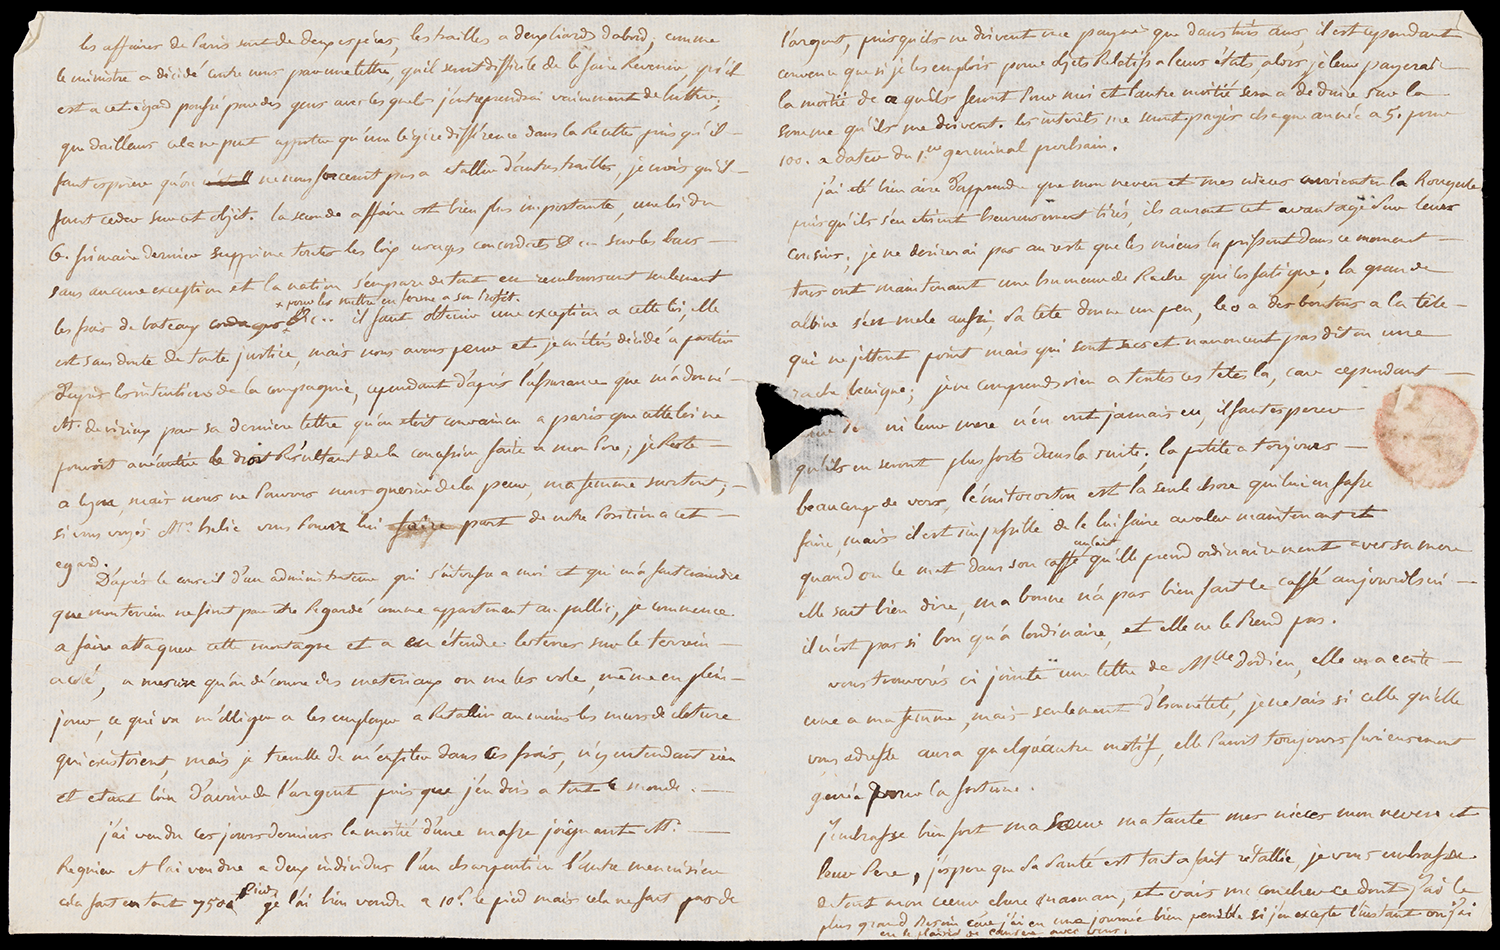 les affaires de Paris sont de deux espèces, les trailles a deux liards d'abord; comme
le ministre a décidé contre nous par une lettre, qu'il seroit difficile de le faire Revenir, qu'il
est a cet égard poussé par des gens avec lesquels j'entreprendrai vainement de lutter,
que d'ailleurs cela ne peut apporter qu'une légère différence dans la Recette puis qu'il
faut espérer qu'on ne nous forcerat pas a etablir d'autres trailles, je crois qu'il
faut ceder sur cet objet. la seconde affaire est bien plus importante, une loi du
6. frimaire dernier supprime toutes les loix usages concordats &c sur les bacs
sans aucune exception et la nation s'empare de tout en remboursant seulement
x pour les mettre en ferme a son Profit.
les frais de bateaux cordages &c... il faut obtenir une exception a cette loi, elle
est sans doute de toute justice, mais nous avons peur et je m'étois décidé a partir
d'après les intentions de la compagnie, cependant d'après l'assurance que m'a donné
Mr. de par sa derniere lettre qu'on étoit convaincu a paris que cette loi ne
pouvoit anéantir le droit Résultant de la concession faite a mon Pere; je Reste
a lyon, mais nous ne Pouvons nous guerir de la peur, ma femme surtout;
si vous voyés Mr. belic vous Pouvez lui faire part de notre Position a cet
egard.
D'après le conseil d'un administrateur qui s'intéresse a moi et qui m'a fait craindre
que mon terrein ne finit par etre Regardé comme appartenant au public, je commence
a faire attaquer cette montagne et a en étendre les terres sur le terrein
a coté, a mesure qu'on découvre des materiaux on me les vole, même en plein
jour, ce qui va m'obliger a les employer a Retablir au moins les murs de cloture
qui existoient, mais je tremble de m'enfiler dans ces frais, n'y entendant rien
et etant loin d'avoir de l'argent puis que j'en dois a tout le monde.
j'ai vendu ces jours derniers la moitié d'une masse joignante Mr.
Regnier et l'ai vendue a deux individus l'un charpentier l'autre menuisier
cela fait en tout 7500 Pieds que j'ai bien vendu a 10# le pied mais cela ne fait pas de
l'argent, puisqu'ils ne doivent me payer que dans trois ans, il est cependant
convenu que si je les emplois pour objets Relatifs a leurs états, alors je leur payerai
la moitié de ce qu'ils feront Pour moi et l'autre moitié sera a deduire sur la
somme qu'ils me doivent. les interets me sont payés chaque année a 5. pour
100. a dater du 1er germinal prochain.
j'ai été bien aise d'apprendre que mon neveu et mes nieces avoient eu la Rougeole
puis qu'ils s'en étoient heureusement tirés, ils auront cet avantage sur leurs
cousins, je ne desirerai pas au reste que les miens la prissent dans ce moment
tous ont maintenant une humeur de Rache qui les fatigue, la grande
albine s'en mele aussi, sa tete donne un peu, leo a des boutons a la tête
qui ne jettent point mais qui sont secs et n'annoncent pas dit on une
rache benigne; je ne comprends rien a toutes ces têtes la, car cependant
ni leur mere n'en ont jamais eu, il faut esperer
qu'ils en seront plus forts dans la suite; la petite a toujours
beaucoup de vers, l'émitocorton est la seule chose qui lui en fasse
faire, mais il est impossible de le lui faire avaler maintenant et
quand on le met dans son caffé au lait qu'elle prend ordinairement avec sa mere
elle sait bien dire, ma bonne n'a pas bien fait le caffé aujourd'hui
il n'est pas si bon qu'a l'ordinaire, et elle ne le Prend pas.
vous trouverés ci jointe une lettre de Mlle Dodieu, elle en a ecrite
une a ma femme, mais seulement d'honnêteté, je ne sais si celle qu'elle
vous adresse aura quelqu'autre motif, elle Paroit toujours furieusement
génée Pour la fortune.
j'embrasse bien fort ma soeur ma tante mes nièces mon neveu et
leur Pere, j'espere que sa santé est tout a fait rétablie, je vous embrasse
de tout mon coeur chere maman, et vais me coucher ce dont J'ai le
plus grand Besoin car j'ai eu une journée bien penible si j'en excepte l'instant où j'ai
eu le plaisir de causer avec vous.